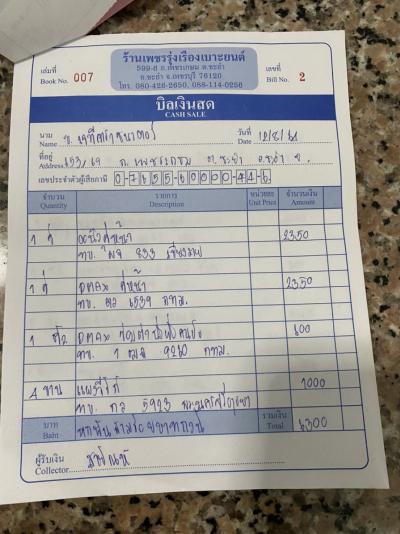 ร้านเพชรรุ่งเรืองเบาะยนต์
599-6 ถ.เพชรเกษม ต.ชะอำ
อ.ชะอำ จ.เพชรบุรี 76120
โทร. 080-426-2650, 088-114-0256
เล่มที่
Book No. 007
เลขที่
Bill No. 2
บิลเงินสด
CASH SALE
นาม
Name
วันที่
Date 12/8/61
ที่อยู่
Address 653/69 ถ.เพชรเกษม ต.ชะอำ อ.ชะอำ จ.
เลขประจำตัวผู้เสียภาษี 0-7655-60000-41-6
จำนวน
Quantity
รายการ
Description
หน่วยละ
Unit Price
จำนวนเงิน
Amount
1 คู่ คู่หน้า 2350
ทบ. 833 เชียงราย
1 คู่ DMAX คู่หน้า 2350
ทบ. 6539 กทม.
1 ตัว DMAX 600
ทบ. 1 ฒฌ 9260 กทม.
4 1000
ทบ. 5923
บาท
Baht หกพันสามร้อยบาทถ้วน
รวมเงิน
Total 6300
ผู้รับเงิน
Collector